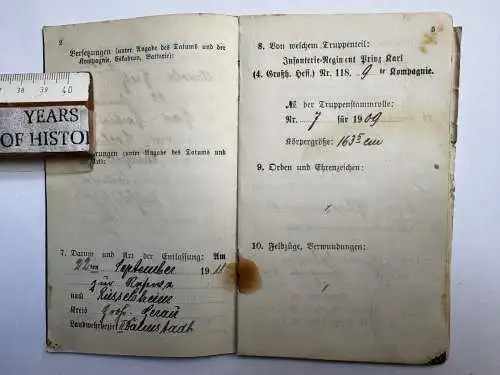 2
Versetzungen (unter Angabe des Datums und der
Kompagnie, Eskadron, Batterie):
38 39 40
YEARS
OF HISTOR
unter Angabe des Datums und
7. Datum und Art der Entlassung: Am
22ten September 1911
zur Reserve
nach Rüsselsheim
Kreis Groß-Gerau
Landwehrbezirk II Darmstadt
5
8. Von welchem Truppenteil:
Infanterie-Regiment Prinz Karl
(4. Großh. Hess.) Nr. 118. 9te Kompagnie.
№ der Truppenstammrolle:
Nr. 7 für 1909
Körpergröße: 163⁵ cm
9. Orden und Ehrenzeichen:
10. Feldzüge, Verwundungen: